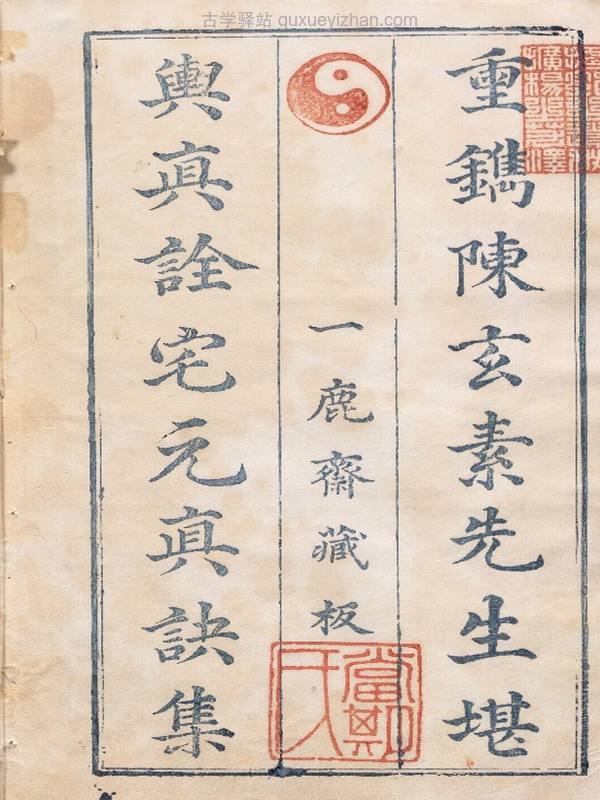 古学驿站 guxueyizhan.com
重鐫陳玄素先生堪
一鹿齋藏板
輿真詮宅元真訣集